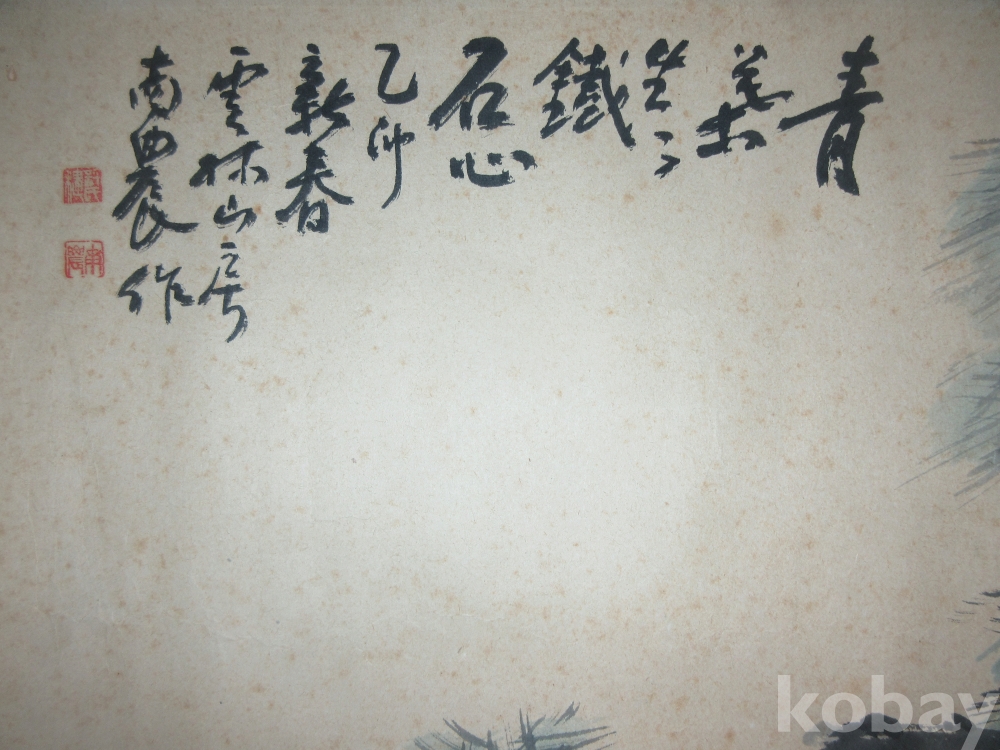 青
葉
鐵
石心
乙卯
新春
雲林山房
南田農作
kobay